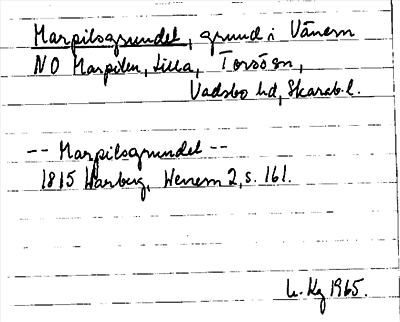 Marpilsgrundet, grund i Vänern
NO Marpilen, Lilla, Torsö sn,
Vadsbo hd, Skarab.l.
-- Marpilsgrundet --
1815 Warberg, Wenern 2, s. 161.
Kg 1965.